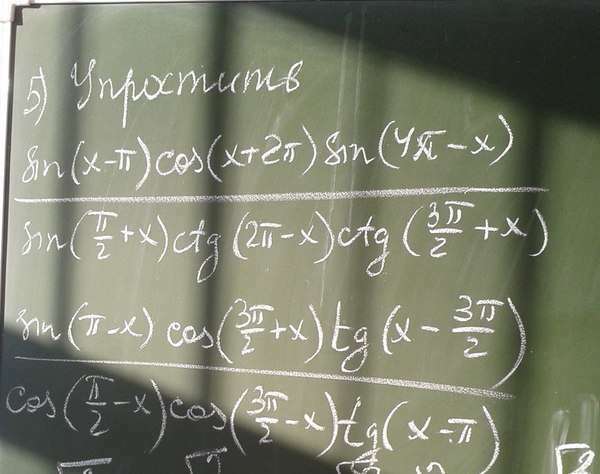 5) Упростить
sin(x-π)cos(x+2π)sin(4π-x)
sin(π/2+x)ctg(2π-x)ctg(3π/2+x)
sin(π-x)cos(3π/2+x)tg(x-3π/2)
cos(π/2-x)cos(3π/2-x)tg(x-π)